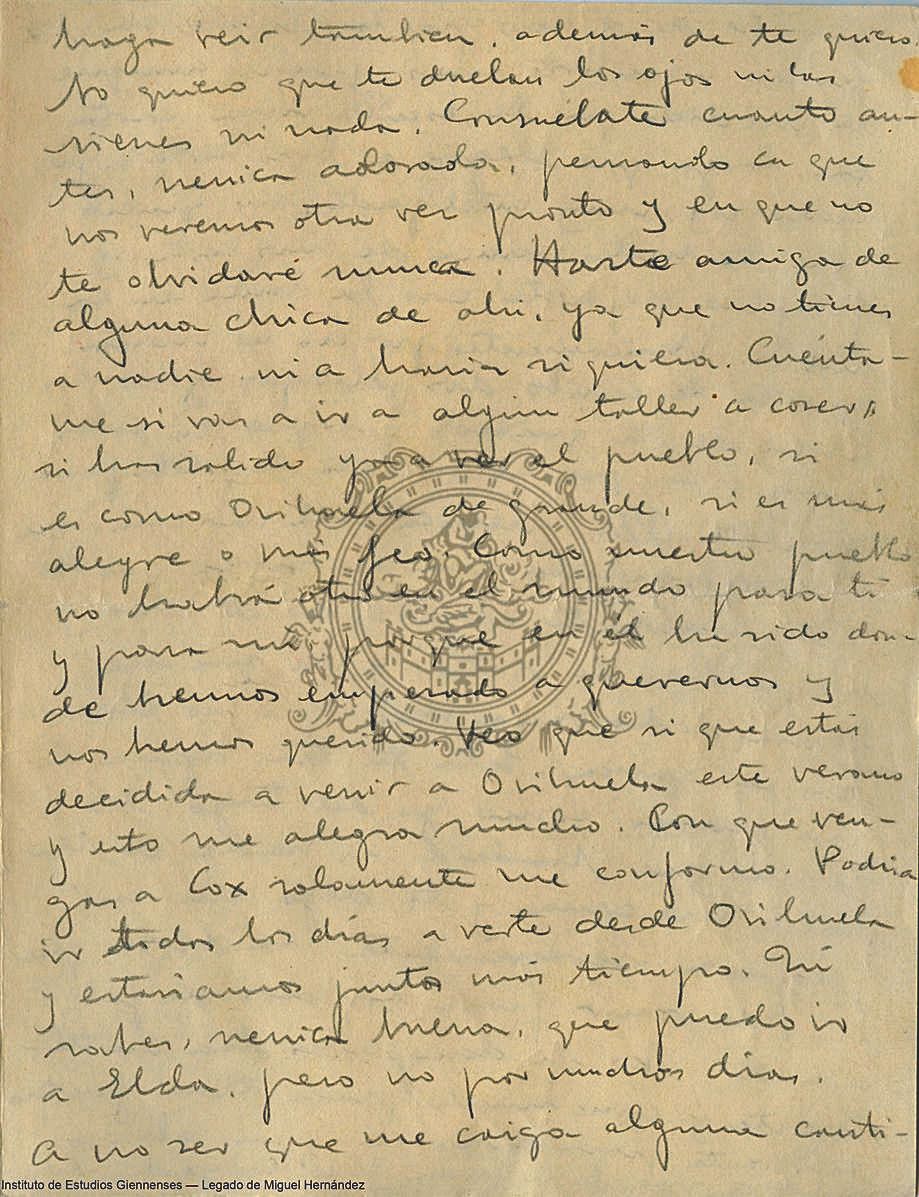 haga reir tambien, además de te quiero.
No quiero que te duelan los ojos ni las
sienes ni nada. Consuélate cuanto an-
tes, nenica adorada, pensando en que
nos veremos otra vez pronto y en que no
te olvidaré nunca. Hazte amiga de
alguna chica de ahi, ya que no tienes
a nadie, ni a Maria siquiera. Cuénta-
me si vas a ir a algún taller a coser,
si has salido ya a ver el pueblo, si
es como Orihuela de grande, si es más
alegre o más feo. Como nuestro pueblo
no habrá otro en el mundo para ti
y para mí, porque en él ha sido don-
de hemos empezado a querernos y
nos hemos querido. Veo que si que estás
decidida a venir a Orihuela este verano
y esto me alegra mucho. Con que ven-
gas a Cox solamente me conformo. Podria
ir todos los días a verte desde Orihuela
y estariamos juntos más tiempo. Tú
sabes, nenica buena, que puedo ir
a Elda, pero no por muchos dias.
A no ser que me caiga alguna canti-
Instituto de Estudios Giennenses — Legado de Miguel Hernández